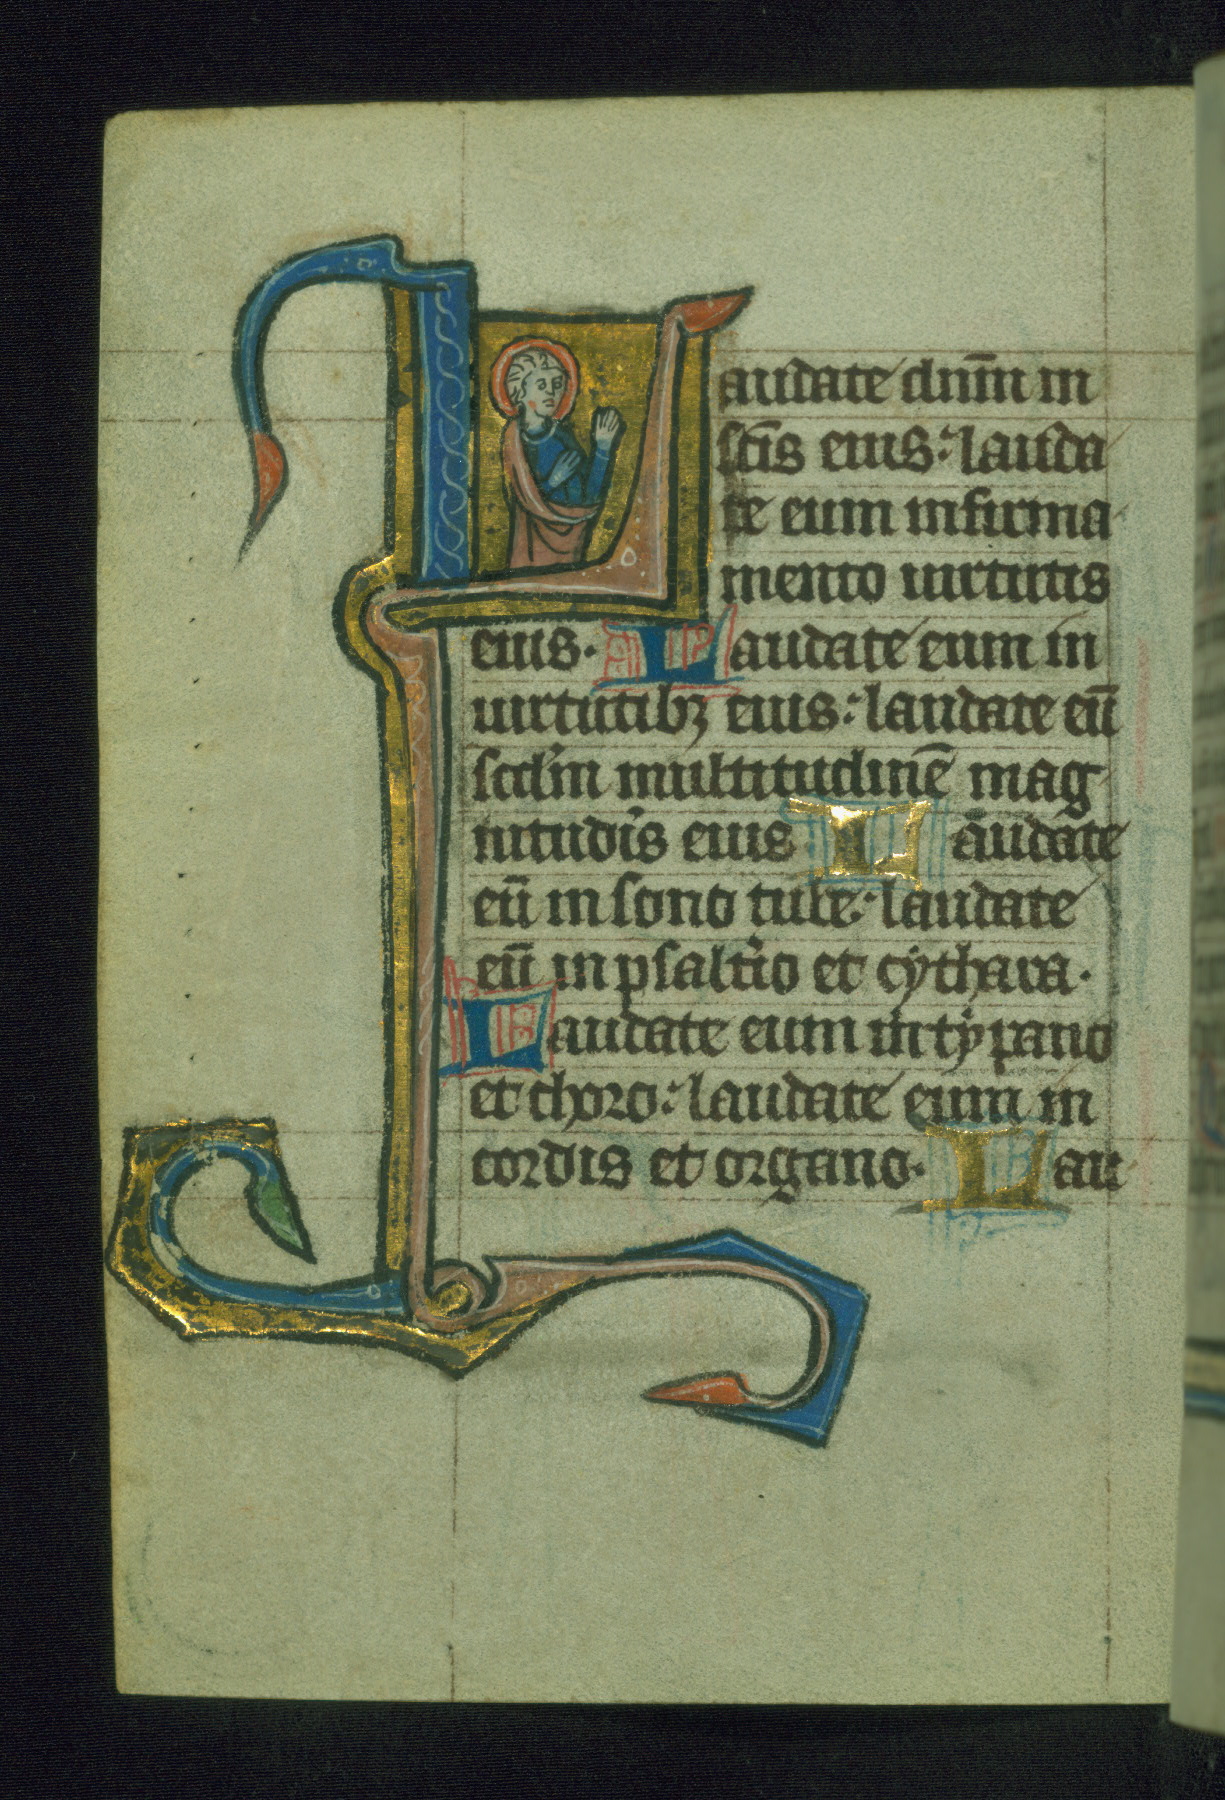 Laudate dn̄m in
sc̄is eius: lauda
te eum in firma
mento uirtutis
eius. Laudate eum in
uirtutibꝫ eius: laudate eū
scd̄m multitudinē mag
nitudīs eius Laudate
eū in sono tube: laudate
eū in psalt̄io et cythara.
Laudate eum in tẏpano
et choro: laudate eum in
cordis et organo. Lau